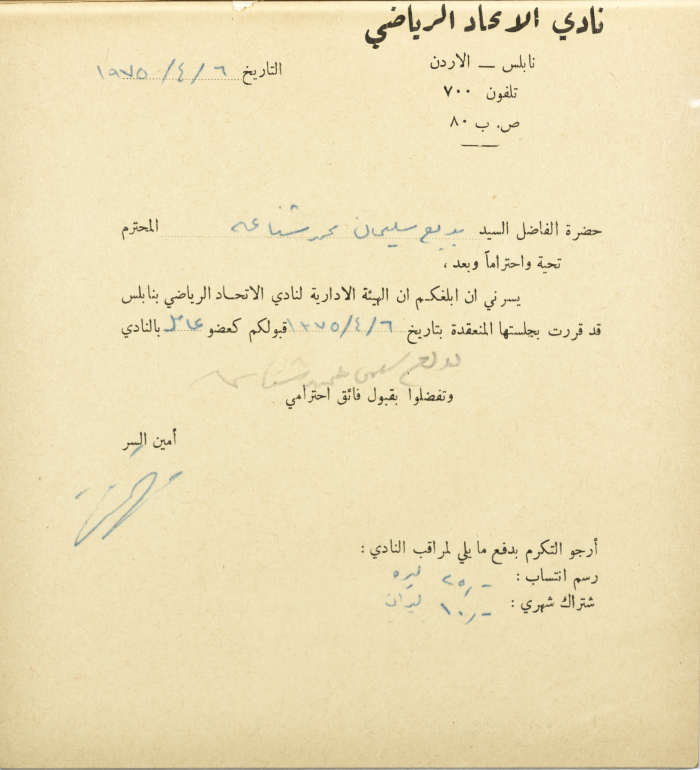 نادي الاتحاد الرياضي
نابلس — الاردن
تلفون ٧٠٠
ص. ب ٨٠
التاريخ ٦ / ٤ / ١٩٧٥
حضرة الفاضل السيد بديع سليمان محمد شناعه المحترم
تحية واحتراماً وبعد ،
يسرني ان ابلغكم ان الهيئة الادارية لنادي الاتحاد الرياضي بنابلس
قد قررت بجلستها المنعقدة بتاريخ ٦ / ٤ / ١٩٧٥ قبولكم كعضو عامل بالنادي
بديع سليمان محمد شناعه
وتفضلوا بقبول فائق احترامي
أمين السر
أرجو التكرم بدفع ما يلي لمراقب النادي :
رسم انتساب : ٢٥,- ليره
شتراك شهري : ١٠,- ليرات